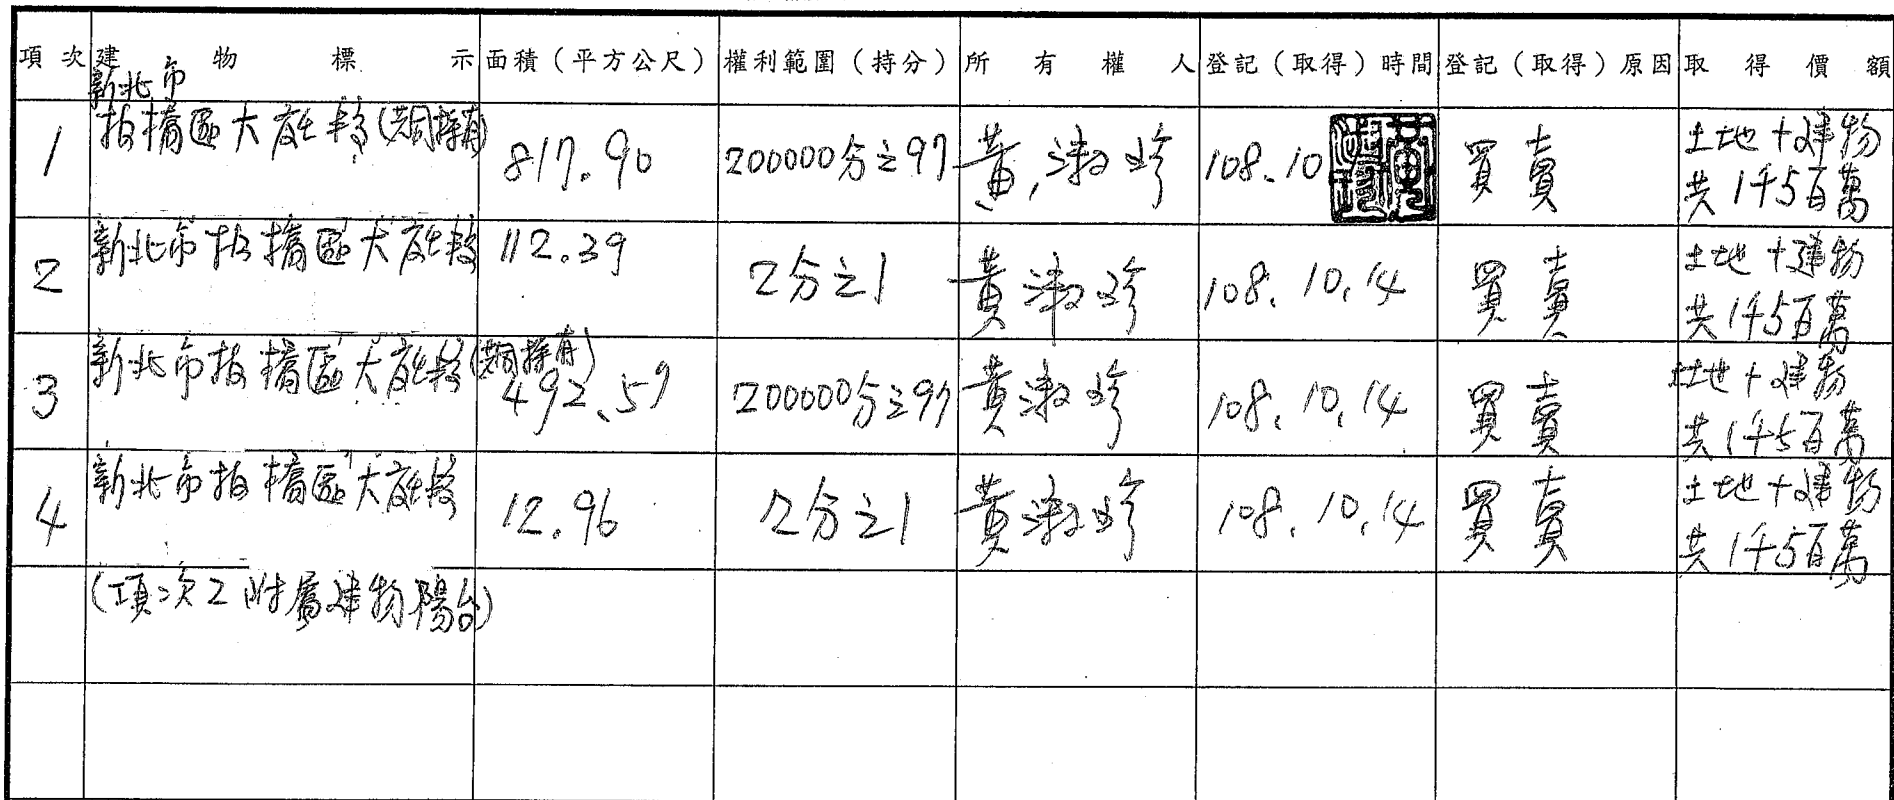 項次 建物標示 面積（平方公尺） 權利範圍（持分） 所有權人 登記（取得）時間 登記（取得）原因 取得價額
新北市
1 板橋區大庄段(共同持有) 817.90 200000分之97 黃淑珍 108.10 買賣 土地+建物
共1千5百萬
2 新北市板橋區大庄段 112.39 2分之1 黃淑珍 108.10.14 買賣 土地+建物
共1千5百萬
3 新北市板橋區大庄段(共同持有) 492.57 200000分之97 黃淑珍 108.10.14 買賣 土地+建物
共1千5百萬
4 新北市板橋區大庄段 12.96 2分之1 黃淑珍 108.10.14 買賣 土地+建物
共1千5百萬
(項次2附屬建物陽台)